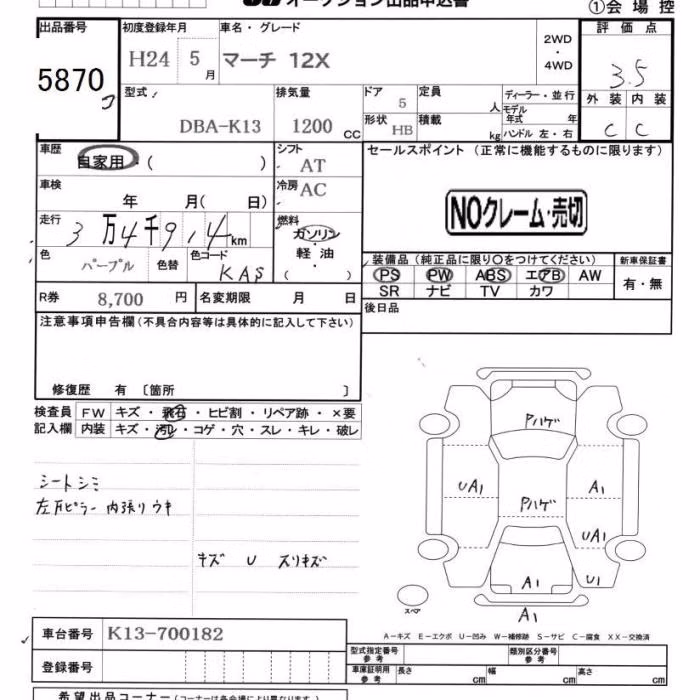 オークション出品申込書
①会場控
出品番号 初度登録年月 車名・グレード 評価点
5870 H24 5月 マーチ 12X 2WD・4WD 3.5
型式 排気量 ドア 定員 ディーラー・並行 外装 内装
DBA-K13 1200 CC 5 人 モデル年式 年 C C
形状 HB 積載 kg ハンドル 左・右
車歴 自家用・( ) シフト AT セールスポイント (正常に機能するものに限ります)
車検 年 月( 日) 冷房 AC
NOクレーム・売切
走行 3万4千914km 燃料 ガソリン・軽油・( )
色 パープル 色替 色コード KAS
装備品 (純正品に限り○をつけてください) 新車保証書
PS PW ABS エアB AW 有・無
SR ナビ TV カワ
R券 8,700 円 名変期限 月 日 後日品
注意事項申告欄(不具合内容等は具体的に記入して下さい)
修復歴 有 〔箇所 〕
検査員記入欄 FW キズ・飛石・ヒビ割・リペア跡・×要
内装 キズ・汚れ・コゲ・穴・スレ・キレ・破レ
シートシミ
左Bピラー内張りウキ
キズ U スリキズ
Pハゲ
UA1 Pハゲ A1
UA1
A1 U1
スペア A1
A-キズ E-エクボ U-凹み W-補修跡 S-サビ C-腐食 XX-交換済
車台番号 K13-700182
登録番号
型式指定番号 参考 類別区分番号 参考
車庫証明用 参考 長さ cm 幅 cm 高さ cm
希望出品コーナー